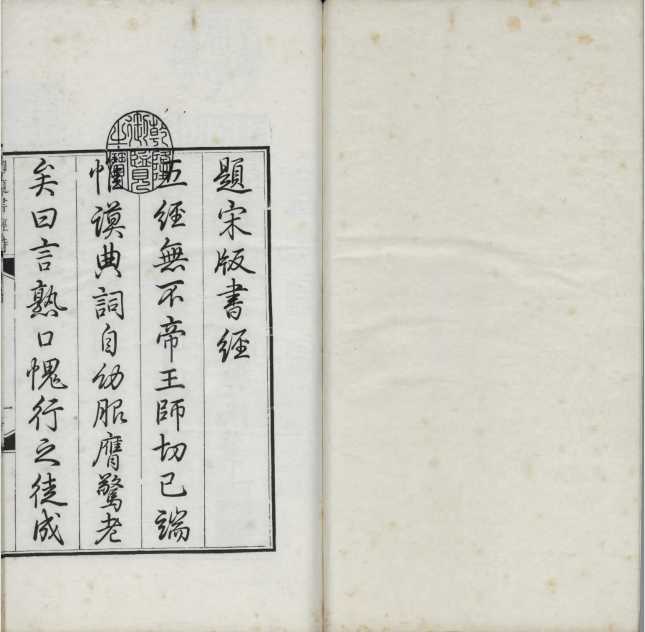 乾隆御覽之寶
題宋版書經
五經無不帝王師切已端
惟謨典詞自幼服膺驚老
矣曰言熟口愧行之徒成